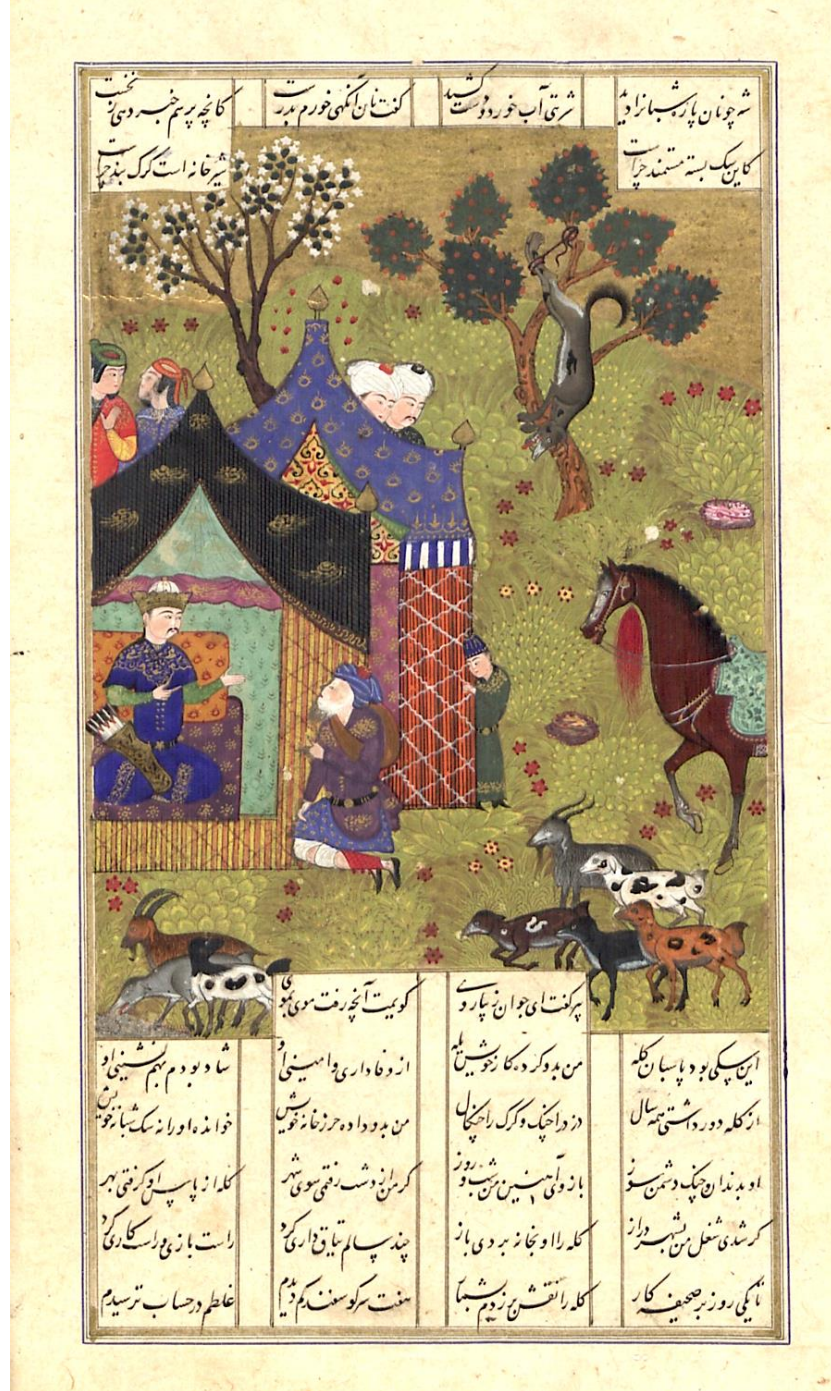 شه چو نان پاره شبانرا دید شربتی آب خورد و دست کشید گفت نان آنگهی خورم بدرست کانچه پرسم خبر دهی ز نخست
کاین سگ بسته مستمند چراست شیر خانه است گرگ بند چراست
پیر گفت ای جوان زیبا روی گویمت آنچه رفت موی بموی
این سگی بود پاسبان گله من بدو کرده کار خویش یله از وفاداری و امینی او شاد بودم بهم نشینی او
از گله دور داشتی همه سال دزد را چنگ و گرگ را چنگال من بدو داده حرز خانه خویش خوانده او را نه سگ شبانه خویش
او بدندان و چنگ دشمن سوز بازوی آهنین من شب و روز گر من از دشت رفتمی سوی شهر گله از پاس او گرفتی بهر
گر شدی شغل من بشهر دراز گله را او بخانه بردی باز چند سالم یتاق داری کرد راست بازی و راست کاری کرد
تا یکی روز بر صحیفه کار گله را نقش بر زدم هفت سر گوسفند کم دیدم غلطم در حساب ترسیدم